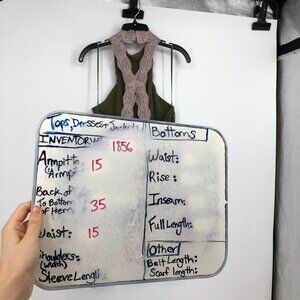 Tops, Dresses + Jackets
INVENTORY# 1856
Armpit to
Armpit 15
Back of
To Bottom
of Hem 35
Waist: 15
Shoulders:
(width)
Sleeve Length
Bottoms
Waist:
Rise:
Inseam:
Full Length:
Other
Belt Length:
Scarf Length: